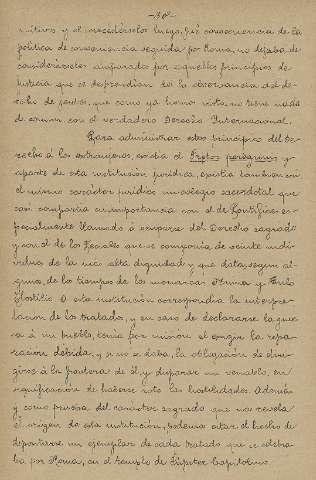 -30-
nitivos y el concedérselos luego, fué consecuencia de la
política de consecuencia seguida por Roma, no dejaba de
considerárseles amparado por aquellos principios de
justicia que se desprendían de la observancia del de-
recho de gentes, que como ya hemos visto, no tiene nada
de común con el verdadero Derecho Internacional.
Para administrar estos principios del De-
recho á los extranjeros existía el Pretor peregrinus y
aparte de esta institución jurídica, existía también con
el mismo carácter jurídico un colegio sacerdotal que
casi compartía su importancia con el de Pontífices es-
pecialmente llamado á ocuparse del Derecho sagrado
y son el de los Feciales que se componía de veinte indi-
viduos de la más alta dignidad y que datan, según al-
gunos, de los tiempos de los monarcas Numa y Tulo
Hostilio. A esta institución correspondía la interpre-
tación de los tratados, y en caso de declararse la guerra
á un pueblo, tenía por misión el exigir la repa-
ración debida, y si no se daba, la obligación de diri-
girse á la frontera de él y disparar un venablo, en
significación de haberse roto las hostilidades. Además
y como prueba del carácter sagrado que nos revela
el origen de esta institución, podemos citar el hecho de
depositarse un ejemplar de cada tratado que se celebra-
ba por Roma, en el templo de Júpiter Capitolino.